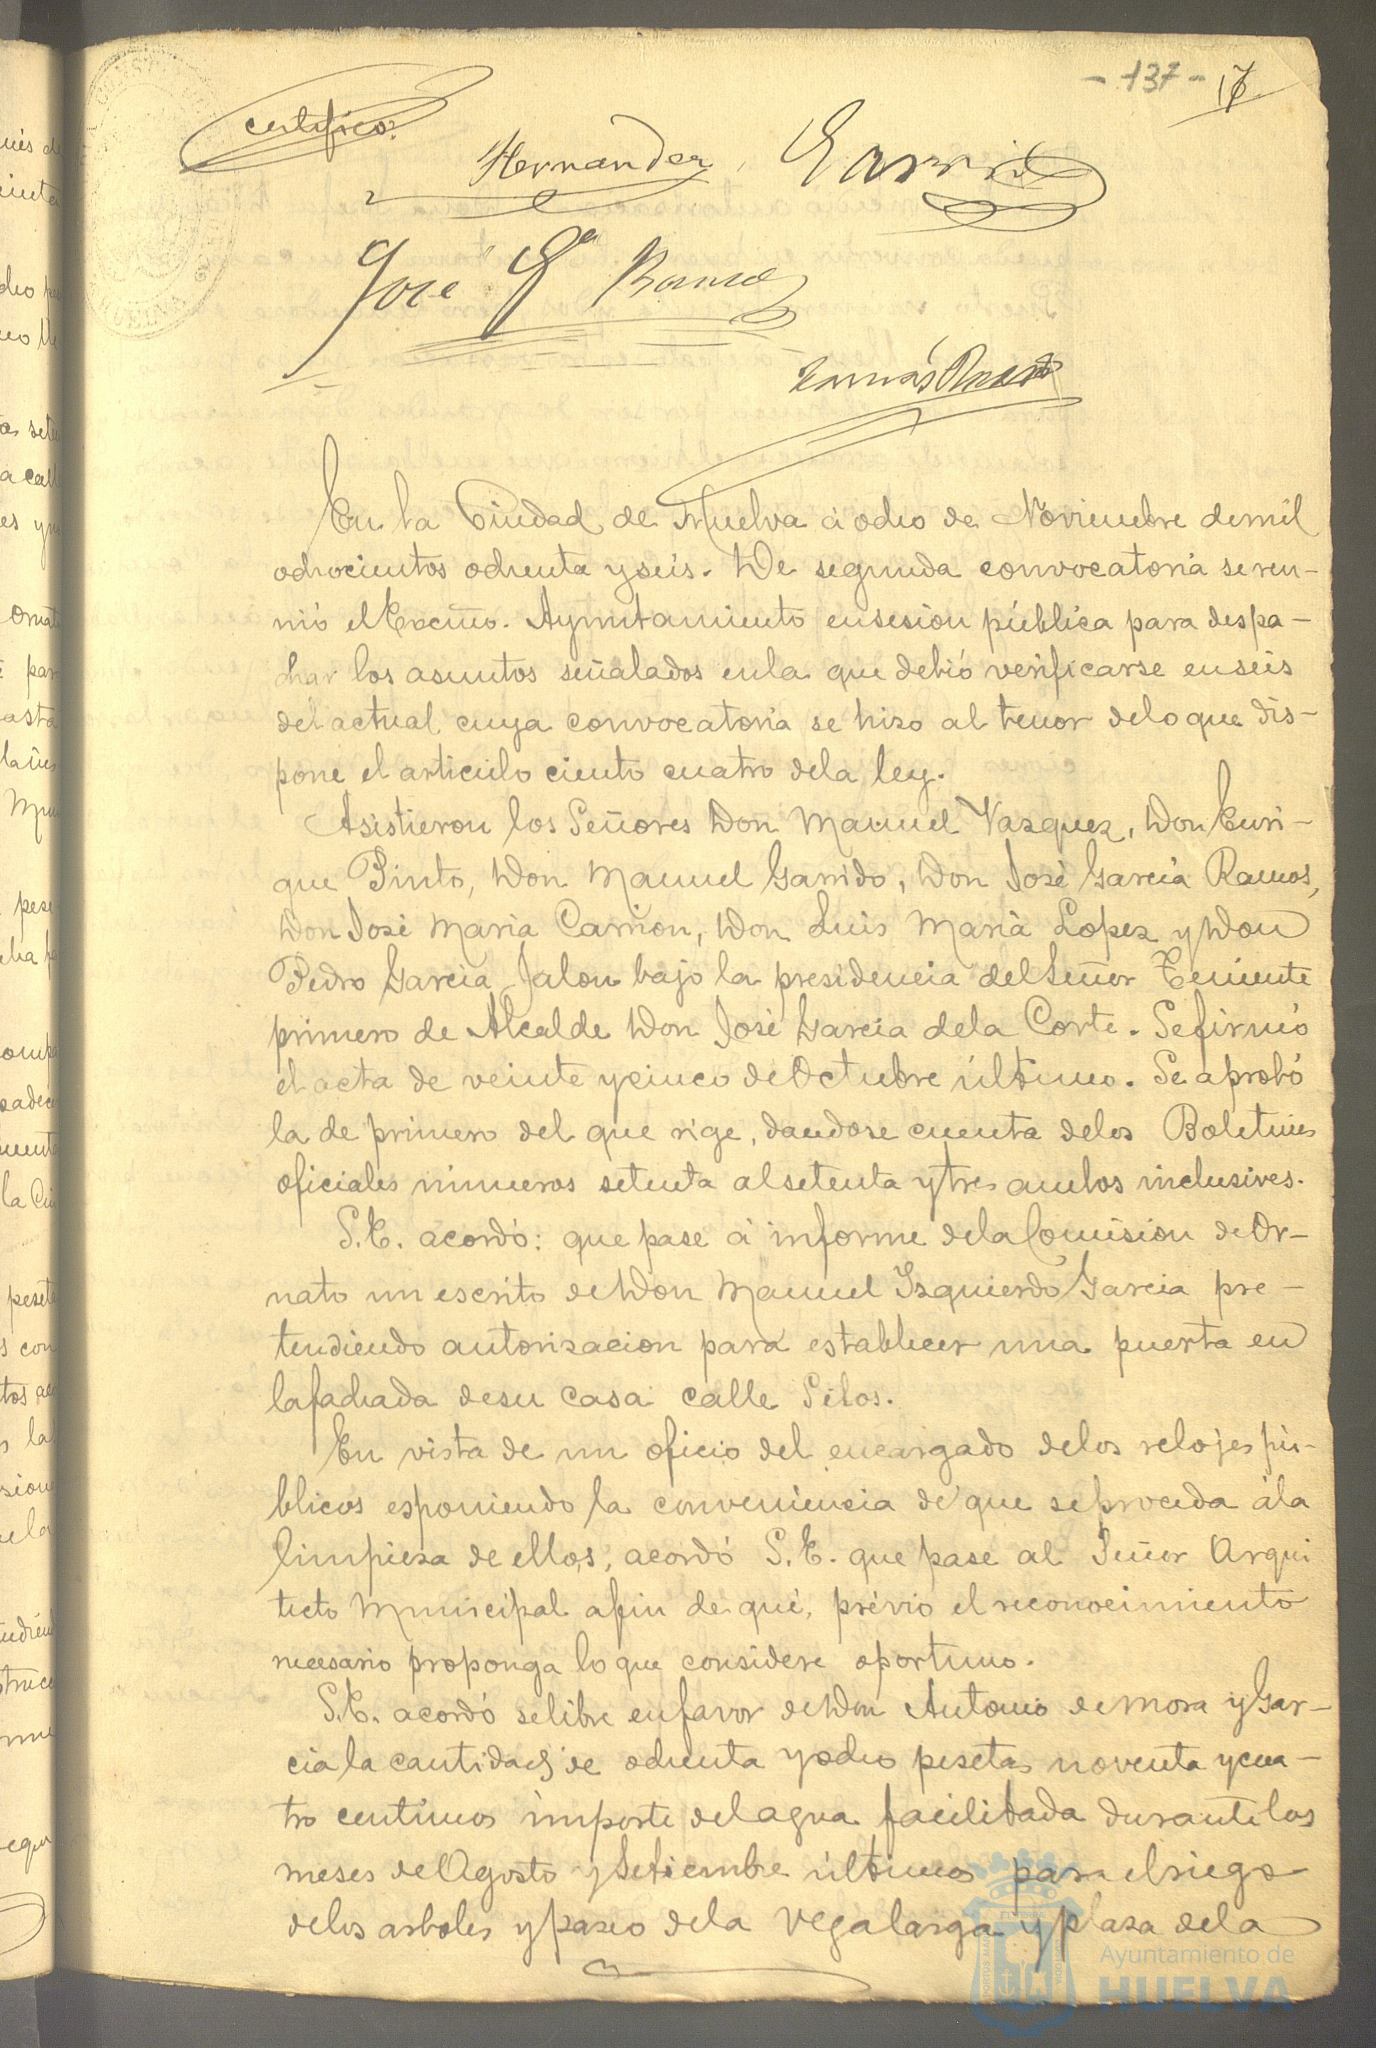 - 137 -
certifico.
Hernandez
José Gª Ramos
En la Ciudad de Huelva á ocho de Noviembre de mil
ochocientos ochenta y seis. De segunda convocatoria se reu-
nió el Excmo. Ayuntamiento en sesion pública para despa-
char los asuntos señalados en la que debió verificarse en seis
del actual cuya convocatoria se hizo al tenor de lo que dis-
pone el articulo ciento cuatro de la ley.
Asistieron los Señores Don Manuel Vazquez, Don Enri-
que Pinto, Don Manuel Garrido, Don José Garcia Ramos,
Don José Maria Carrion, Don Luis Maria Lopez y Don
Pedro Garcia Jalon bajo la presidencia del Señor Teniente
primero de Alcalde Don José Garcia de la Corte. Se firmó
el acta de veinte y cinco de Octubre último. Se aprobó
la de primero del que rige, dandose cuenta de los Boletines
oficiales números setenta al setenta y tres ambos inclusives.
S.E. acordó: que pase á informe de la Comision de Or-
nato un escrito de Don Manuel Izquierdo Garcia pre-
tendiendo autorizacion para establecer una puerta en
la fachada de su casa calle Silos.
En vista de un oficio del encargado de los relojes pú-
blicos esponiendo la conveniencia de que se proceda á la
limpieza de ellos, acordó S.E. que pase al Señor Arqui
tecto Municipal a fin de que, prévio el reconocimiento
necesario proponga lo que considere oportuno.
S.E. acordó se libre en favor de Don Antonio de Mora y Gar-
cia la cantidad de ochenta y ocho pesetas noventa y cua-
tro centimos importe del agua facilitada durante los
meses de Agosto y Setiembre últimos para el riego
de los arboles y paseo de la Vega larga y plaza de la
Ayuntamiento de
HUELVA